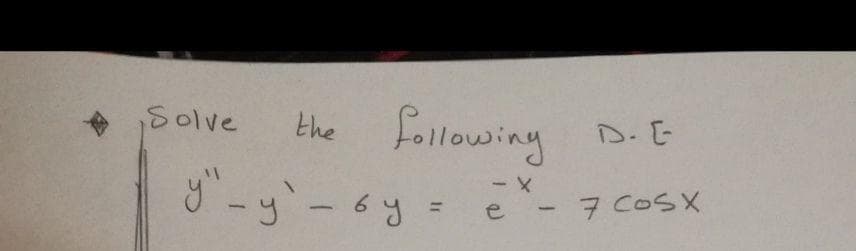 Solve the following D.E
y'' - y' - 6y = e^-x - 7 cosx